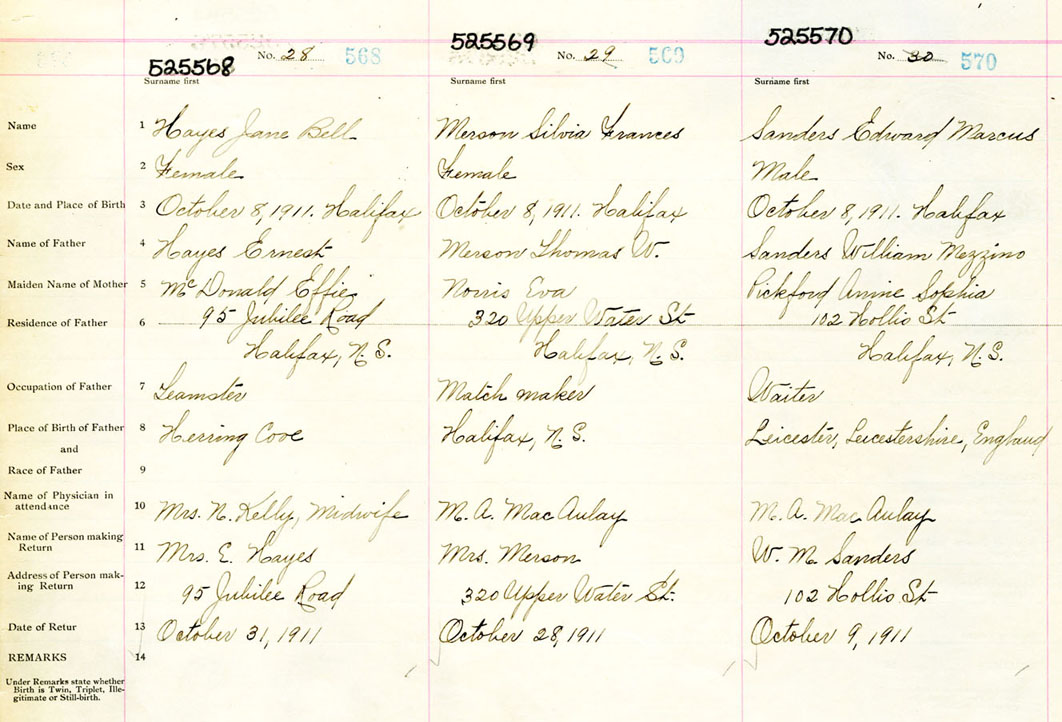 525568 No. 28 568 525569 No. 29 569 525570 No. 30 570
Surname first Surname first Surname first
Name 1 Hayes Jane Bell Merson Silvia Frances Sanders Edward Marcus
Sex 2 Female Female Male
Date and Place of Birth 3 October 8, 1911. Halifax October 8, 1911. Halifax October 8, 1911. Halifax
Name of Father 4 Hayes Ernest Merson Thomas W. Sanders William Mezzino
Maiden Name of Mother 5 McDonald Effie Norris Eva Pickford Annie Sophia
Residence of Father 6 95 Jubilee Road 320 Upper Water St 102 Hollis St
Halifax, N.S. Halifax, N.S. Halifax, N.S.
Occupation of Father 7 Teamster Match maker Waiter
Place of Birth of Father 8 Herring Cove Halifax, N.S. Leicester, Leicestershire, England
and
Race of Father 9
Name of Physician in
attendance 10 Mrs. N. Kelly, Midwife M. A. MacAulay M. A. MacAulay
Name of Person making
Return 11 Mrs. E. Hayes Mrs. Merson W. M. Sanders
Address of Person mak-
ing Return 12 95 Jubilee Road 320 Upper Water St. 102 Hollis St
Date of Retur 13 October 31, 1911 October 28, 1911 October 9, 1911
REMARKS 14
Under Remarks state whether
Birth is Twin, Triplet, Ille-
gitimate or Still-birth.